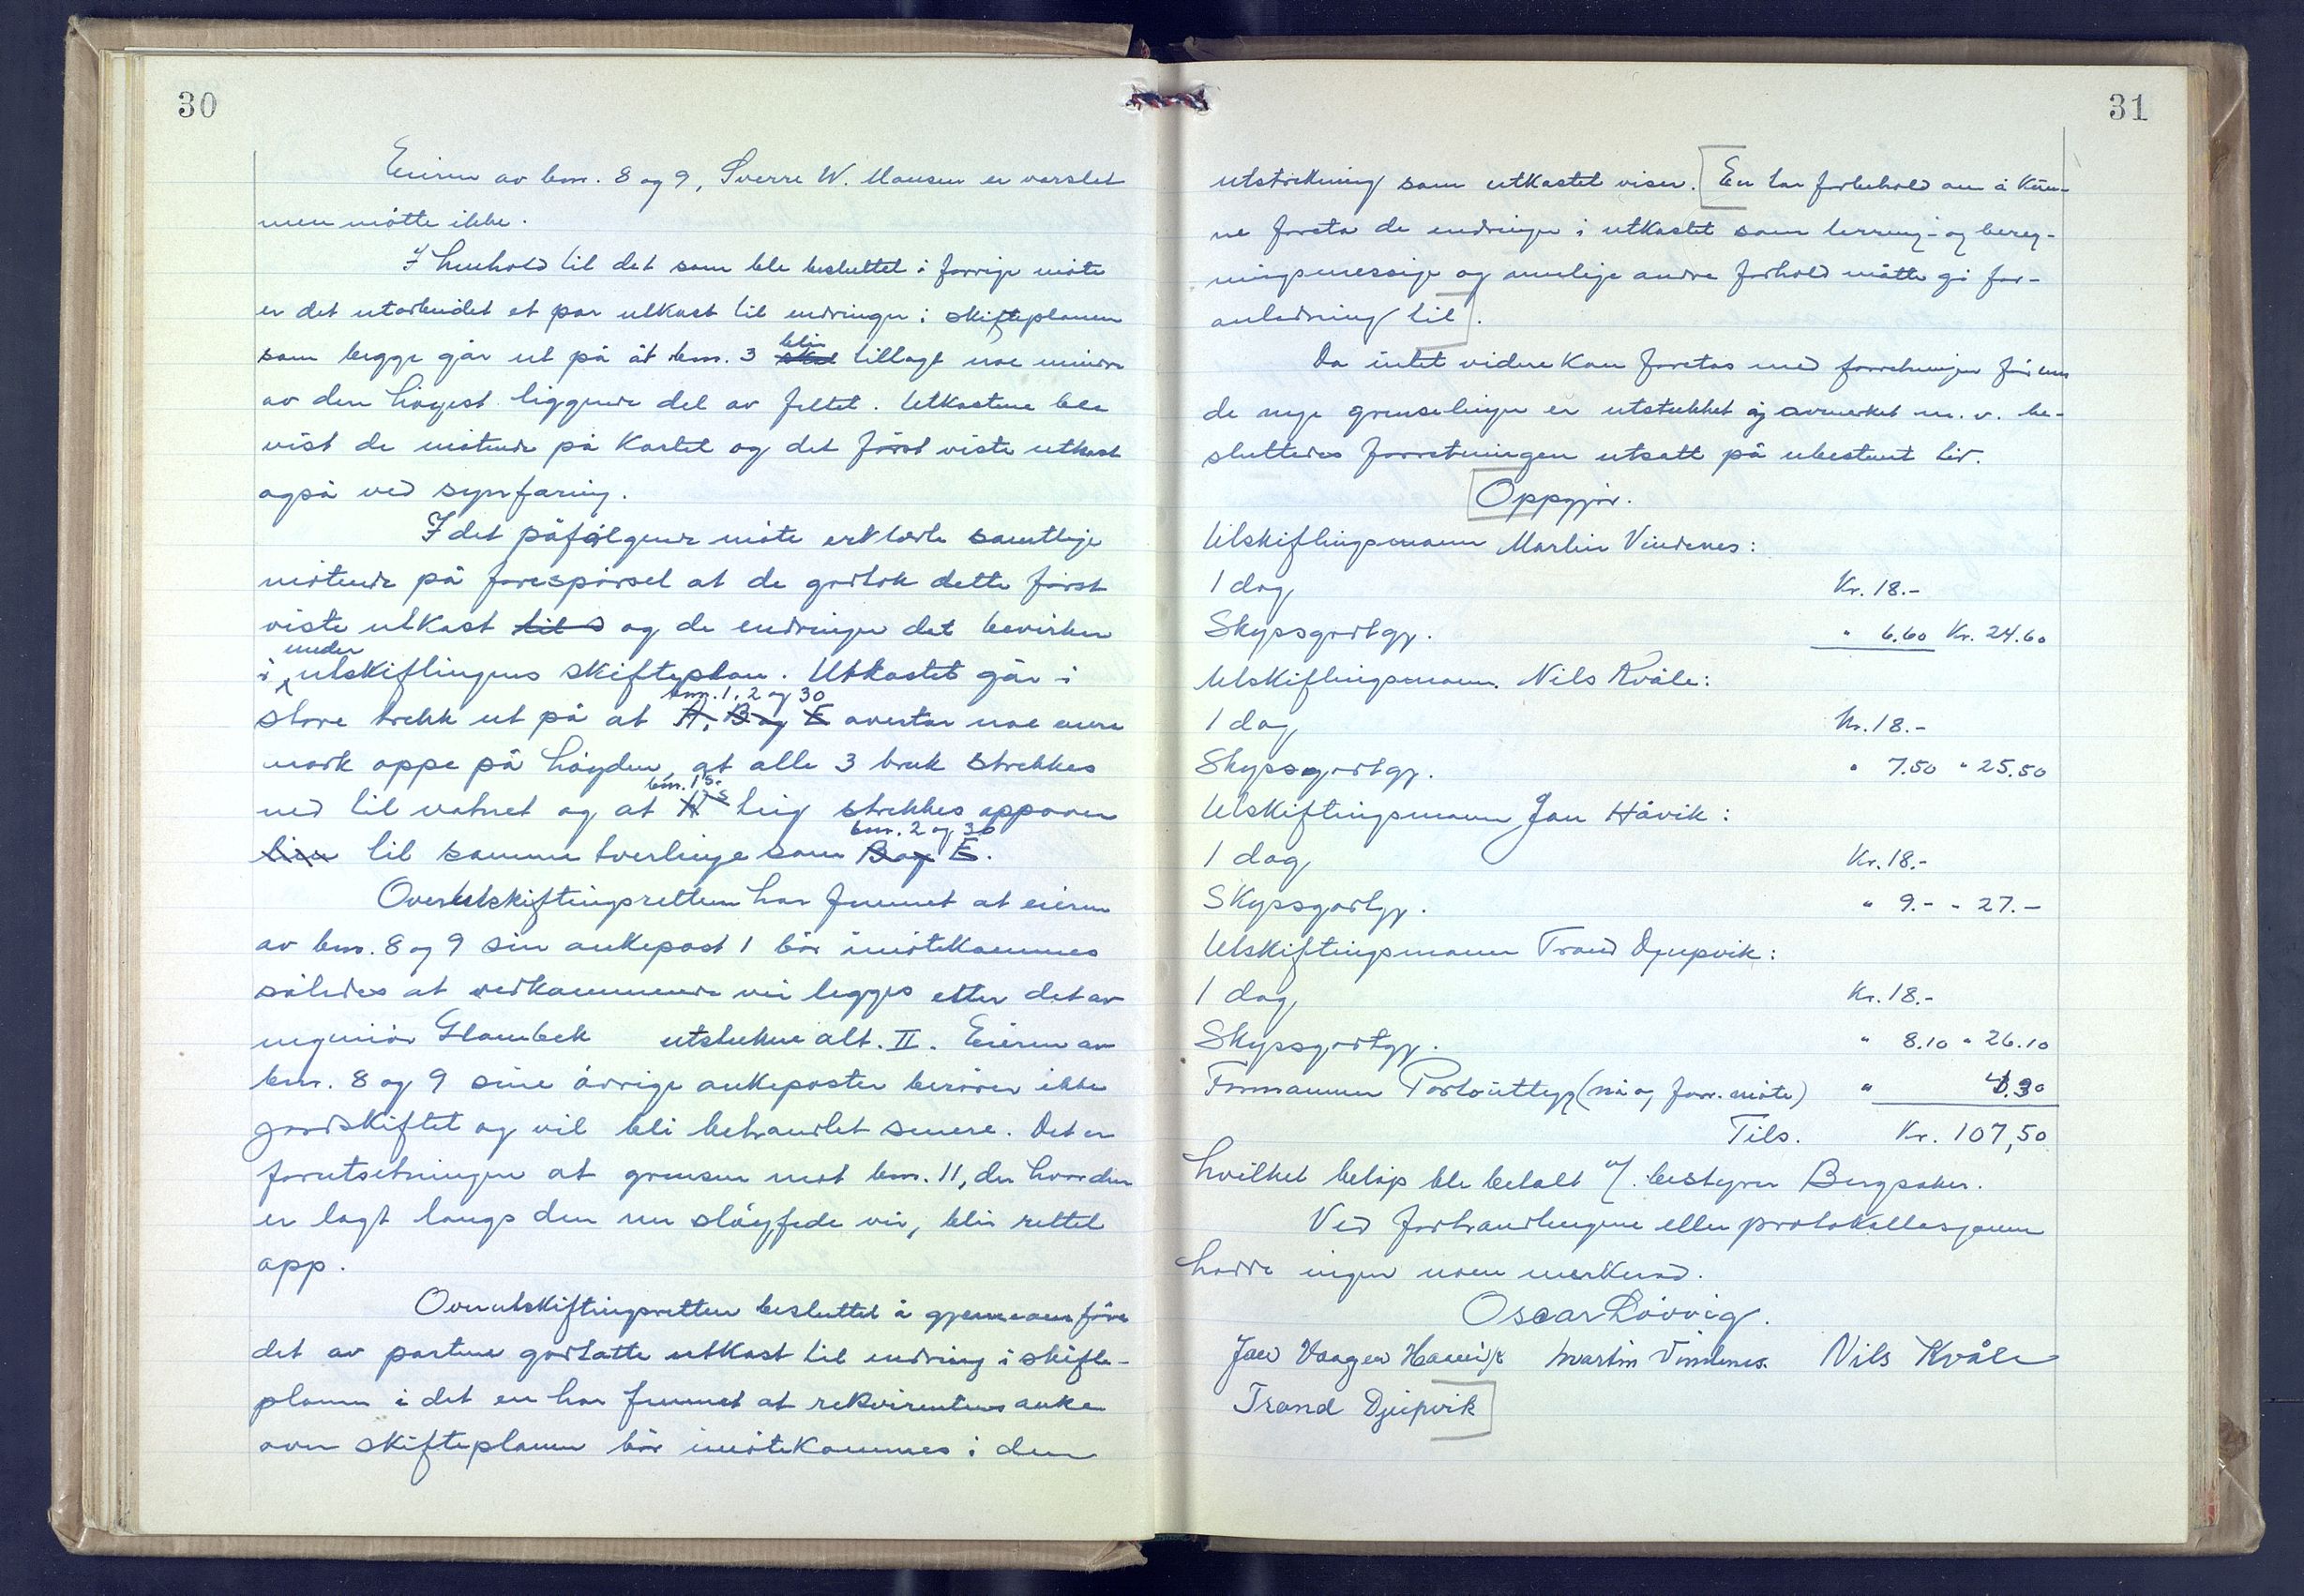 30
Eieren av bnr. 8 og 9, Sverre W. Mausen er varslet
men møtte ikke.
I henhold til det som ble besluttet i forrige møte
er det utarbeidet et par utkast til endringer i skifteplanen
som begge går ut på at bnr. 3 blir tillagt noe mindre
av den høgest liggende del av feltet. Utkastene ble
vist de møtende på kartet og det først viste utkast
også ved synfaring.
I det påfølgende møte erklærte samtlige
møtende på forespørsel at de godtok dette først
viste utkast og de endringer det bevirker
i under utskiftingens skifteplan. Utkastet går i
store trekk ut på at bnr. 1, 2 og 30 overtar noe mere
mark oppe på høgden, at alle 3 bruk strekkes
ned til vatnet og at bnr. 1's. teig strekkes oppover
til samme tverrlinje som bnr. 2 og 30.
Overutskiftingsretten har funnet at eieren
av bnr. 8 og 9 sin ankepost 1 bør imøtekommes
således at vedkommende vei legges etter det av
ingeniør Glambek utstukne alt. II. Eieren av
bnr. 8 og 9 sine øvrige ankeposter berører ikke
jordskiftet og vil bli behandlet senere. Det er
forutsetningen at grensen mot bnr. 11, der hvor den
er lagt langs den nu sløyfede vei, blir rettet
opp.
Overutskiftingsretten besluttet å gjennemføre
det av partene godtatte utkast til endring i skifte-
planen i det en har funnet at rekvirentens anke
over skifteplanen bør imøtekommes i den
31
utstrekning som utkastet viser. En tar forbehold om å kun-
ne foreta de endringer i utkastet som terreng- og bereg-
ningsmessige og mulige andre forhold måtte gi for-
anledning til.
Da intet videre kan foretas med forretningen før enn
de nye grenselinjer er utstukket og avmerket m. v. be-
sluttedes forretningen utsatt på ubestemt tid.
Oppgjør.
Utskiftingsmann Martin Vindenes:
1 dag Kr. 18.-
Skyssgodtgj. " 6.60 Kr. 24.60
Utskiftingsmann. Nils Kvåle:
1 dag Kr. 18.-
Skyssgodtgj. " 7.50 " 25.50
Utskiftingsmann Jan Håvik:
1 dag Kr. 18.-
Skyssgodtgj. " 9.- " 27.-
Utskiftingsmann Trond Djupvik:
1 dag Kr. 18.-
Skyssgodtgj. " 8.10 " 26.10
Formannen Portoutlegg (nå og forr. møte) " 4.30
Tils. Kr. 107,50
hvilket beløp ble betalt v/. bestyrer Bergsaker.
Ved forhandlingene eller protokollasjonen
hadde ingen noen merknad.
Oscar Løvvig.
Jan Vaagen Haavik Martin Vindenes. Nils Kvåle
Trond Djupvik